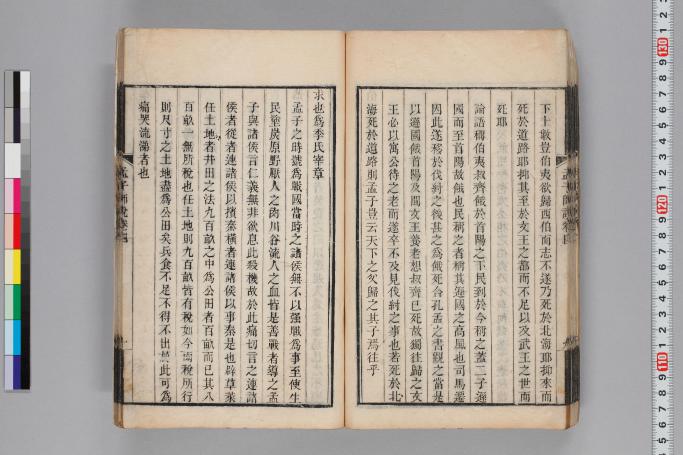 下十數豈伯夷欲歸西伯而志不遂乃死於北海耶抑來而
死於道路耶抑其至於文王之都而不足以及武王之世而
死耶
論語稱伯夷叔齊餓於首陽之下民到於今稱之蓋二子遜
國而至首陽故餓也民稱之者稱其遜國之高風也司馬遷
因此遂移於伐紂之後甚之為餓死合孔孟之書觀之當是
以遜國餓首陽及聞文王養老想叔齊已死故獨往歸之文
王心以寓公待之老而遂卒不及見伐紂之事也若死於北
海死於道路則孟子豈云天下之父歸之其子焉往乎
求也為季氏宰章
孟子之時號為戰國當時之諸侯無不以强戰為事至使生
民塗炭原野厭人之肉川谷流人之血皆是善戰者導之孟
子與諸侯言仁義無非欲息此殺機故於此痛切言之連諸
侯者從者連諸侯以擯秦橫者連諸侯以事秦是也辟草萊
任土地者井田之法九百畝之中為公田者百畝而已其八
百畝一無所稅也任土地則九百畝皆有稅如今兩稅所行
則尺寸之土地盡為公田矣兵食不足不得不出於此可為
痛哭流涕者也
孟子師說卷四
130
120
110